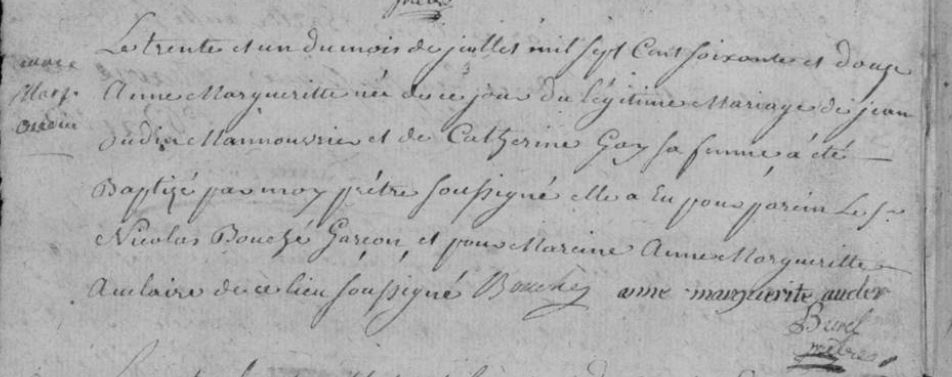 Le trente et un du mois de juillet mil sept Cent soixante et douze
anne
Marg.
Oudin
Anne Margueritte née de ce jour du légitime Mariage de jean
oudin Mannouvrier et de Catherine Gay sa femme, a été
Baptizé par moy prêtre soussigné elle a Eu pour parein Le sr
Nicolas Bouché Garçon, et pour Mareine Anne Margueritte
Auclaire de ce lieu soussigné Bouchez anne marguerite